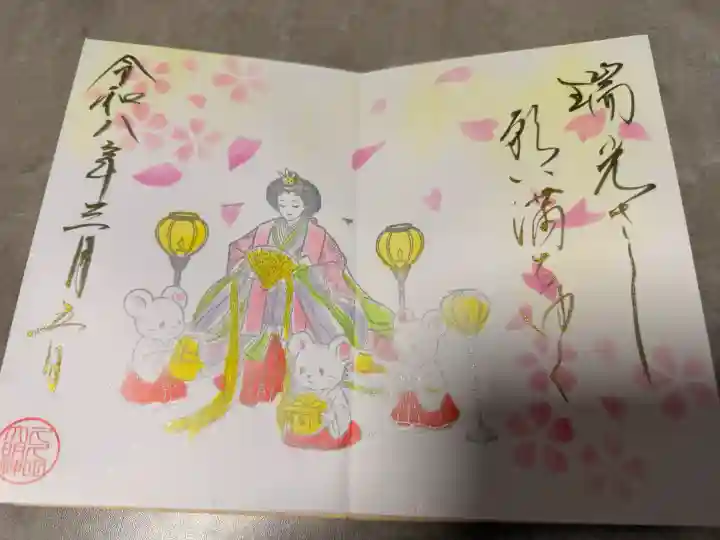 瑞光さし
願い満ちゆく
令和八年三月五日